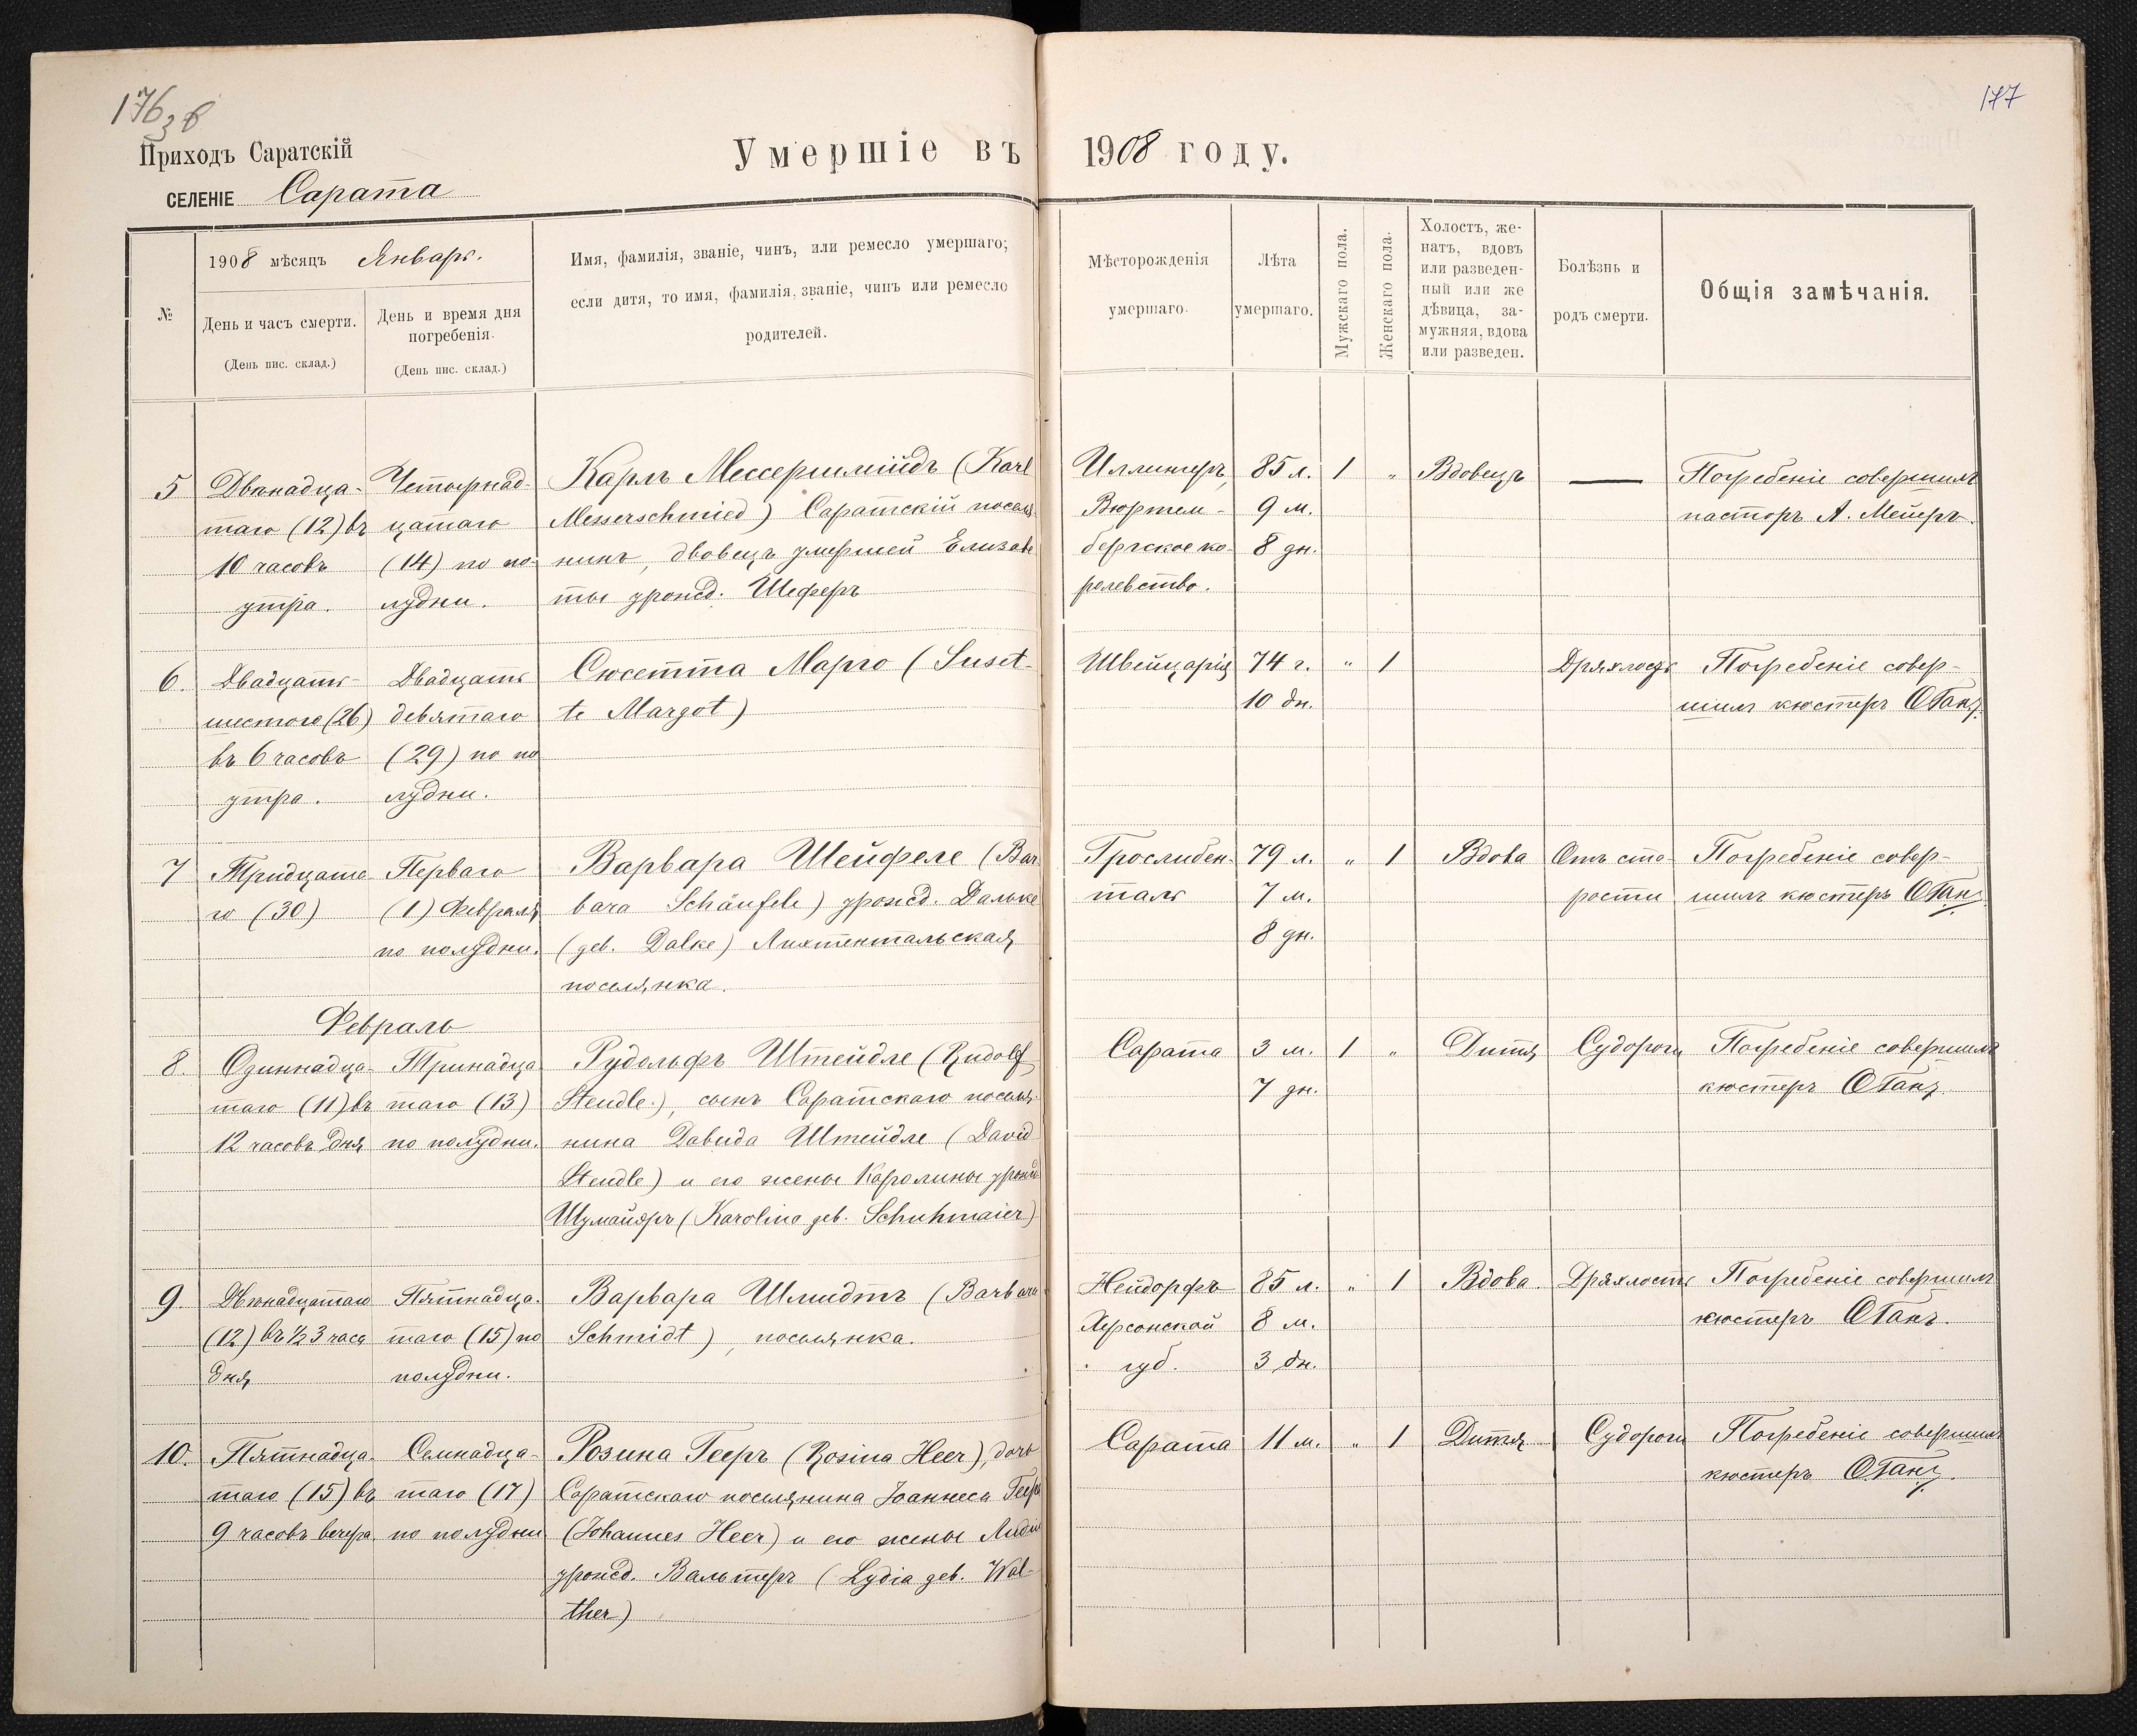 176 зв
177
Приходъ Саратскій
Умершіе въ 1908 году.
СЕЛЕНІЕ Сарата
№
1908 мѣсяцъ Январь.
День и часъ смерти.
(День пис. склад.)
День и время дня
погребенія.
(День пис. склад.)
Имя, фамилія, званіе, чинъ, или ремесло умершаго;
если дитя, то имя, фамилія, званіе, чинъ или ремесло
родителей.
Мѣсторожденія
умершаго.
Лѣта
умершаго.
Мужскаго пола.
Женскаго пола.
Холостъ, же-
натъ, вдовъ
или разведен-
ный или же
дѣвица, за-
мужняя, вдова
или разведен.
Болѣзнь и
родъ смерти.
Общія замѣчанія.
5
Двѣнадца-
таго (12) въ
10 часовъ
утра.
Четырнад-
цатаго
(14) по по-
лудни.
Карлъ Мессершмидъ (Karl
Messerschmied) Саратскій поселя-
нинъ, двовецъ умершей Елизаве
ты урожд. Шеферъ
Иллингеръ,
Вюртем-
бергское ко-
ролевство.
85 л.
9 м.
8 дн.
1
"
Вдовецъ
—
Погребеніе совершилъ
пасторъ А. Мейеръ.
6.
Двадцать-
шестого (26)
въ 6 часовъ
утра.
Двадцать
девятаго
(29) по по
лудни.
Сюсетта Марго (Suset-
te Margot)
Швейцарія
74 г.
10 дн.
"
1
Дряхлость
Погребеніе совер-
шилъ кюстеръ О Ганз.
7
Тридцата
го (30)
Перваго
(1) Февраля
по полудни.
Варвара Шейфеле (Bar
bara Schäufele) урожд. Дальке
(geb. Dalke) Лихтентальская
поселянка.
Грослибен-
таль
79 л.
7 м.
8 дн.
"
1
Вдова
Отъ ста-
рости
Погребеніе совер-
шилъ кюстеръ О Ганз
Февраль
8.
Одиннадца-
таго (11) въ
12 часовъ дня
Тринадца
таго (13)
по полудни.
Рудольфъ Штейдле (Rudolf
Steudle), сынъ Саратскаго поселя-
нина Давида Штейдле (David
Steudle) и его жены Каролины урожд
Шумайеръ (Karolina geb. Schuhmaier)
Сарата
3 м.
7 дн.
1
"
Дитя
Судороги
Погребеніе совершилъ
кюстеръ О Ганз.
9
Двѣнадцатаго
(12) въ ½ 3 часа
дня
Пятнадца-
таго (15) по
полудни.
Варвара Шмидтъ (Barbara
Schmidt), поселянка.
Нейдорфъ
Херсонской
губ.
85 л.
8 м.
3 дн.
"
1
Вдова
Дряхлость
Погребеніе совершилъ
кюстеръ О Ганз.
10.
Пятнадца-
таго (15) въ
9 часовъ вечера.
Семнадца-
таго (17)
по полудни
Розина Гееръ (Rosina Heer), дочь
Саратскаго поселянина Іоаннеса Геера
(Johannes Heer) и его жены Лидіи
урожд. Вальтеръ (Lydia geb. Wal-
ther)
Сарата
11 м.
"
1
Дитя
Судороги
Погребеніе совершилъ
кюстеръ О Ганз.